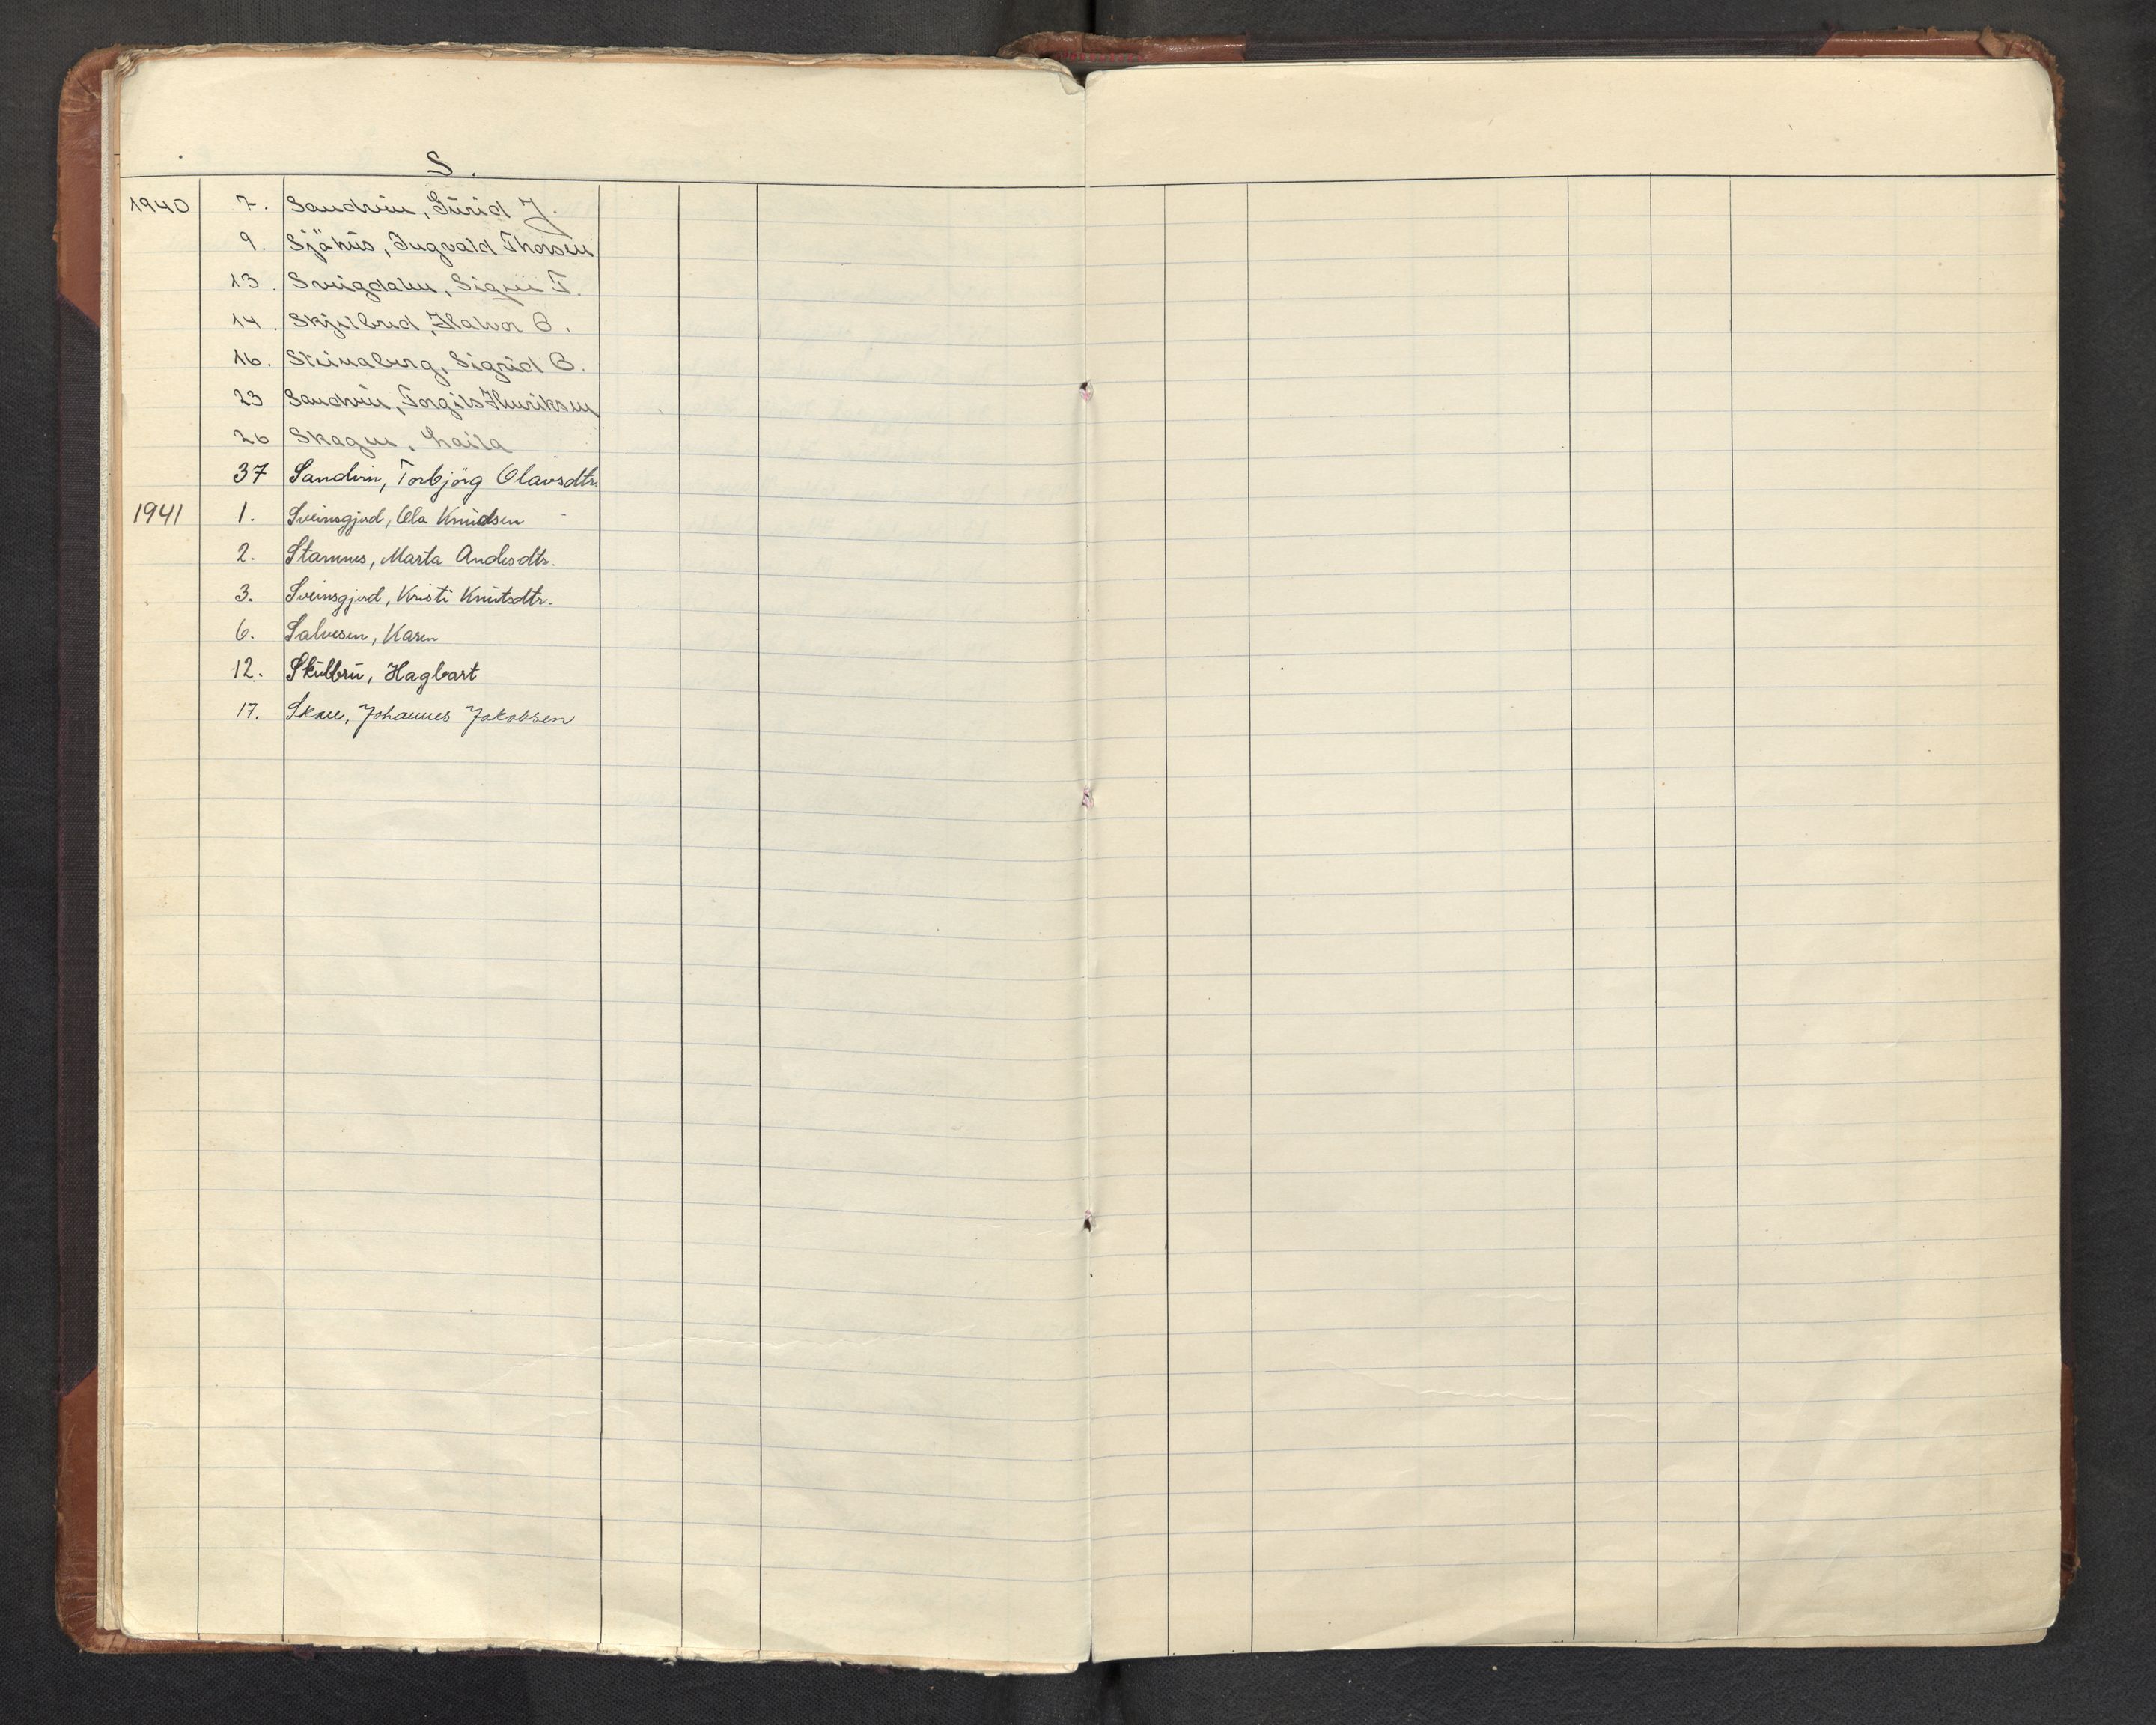 S.
1940 7. Sandvin, Gurid J.
9. Sjöhus, Ingvald Thorsen
13. Sveigdalen, Signe T.
14. Skjelbred, Halvor O.
16. Steinaberg, Sigrid O.
23 Sandvin, Torgils Henriksen
26 Skagen, Laila
37 Sandvin, Torbjörg Olavsdtr.
1941 1. Sveinsgjerd, Ola Knudsen
2. Stamnes, Marta Andersdtr.
3. Sveinsgjerd, Kristi Knutsdtr.
6. Salvesen, Karen
12. Skulbru, Hagbart
17. Skaue, Johannes Jakobsen